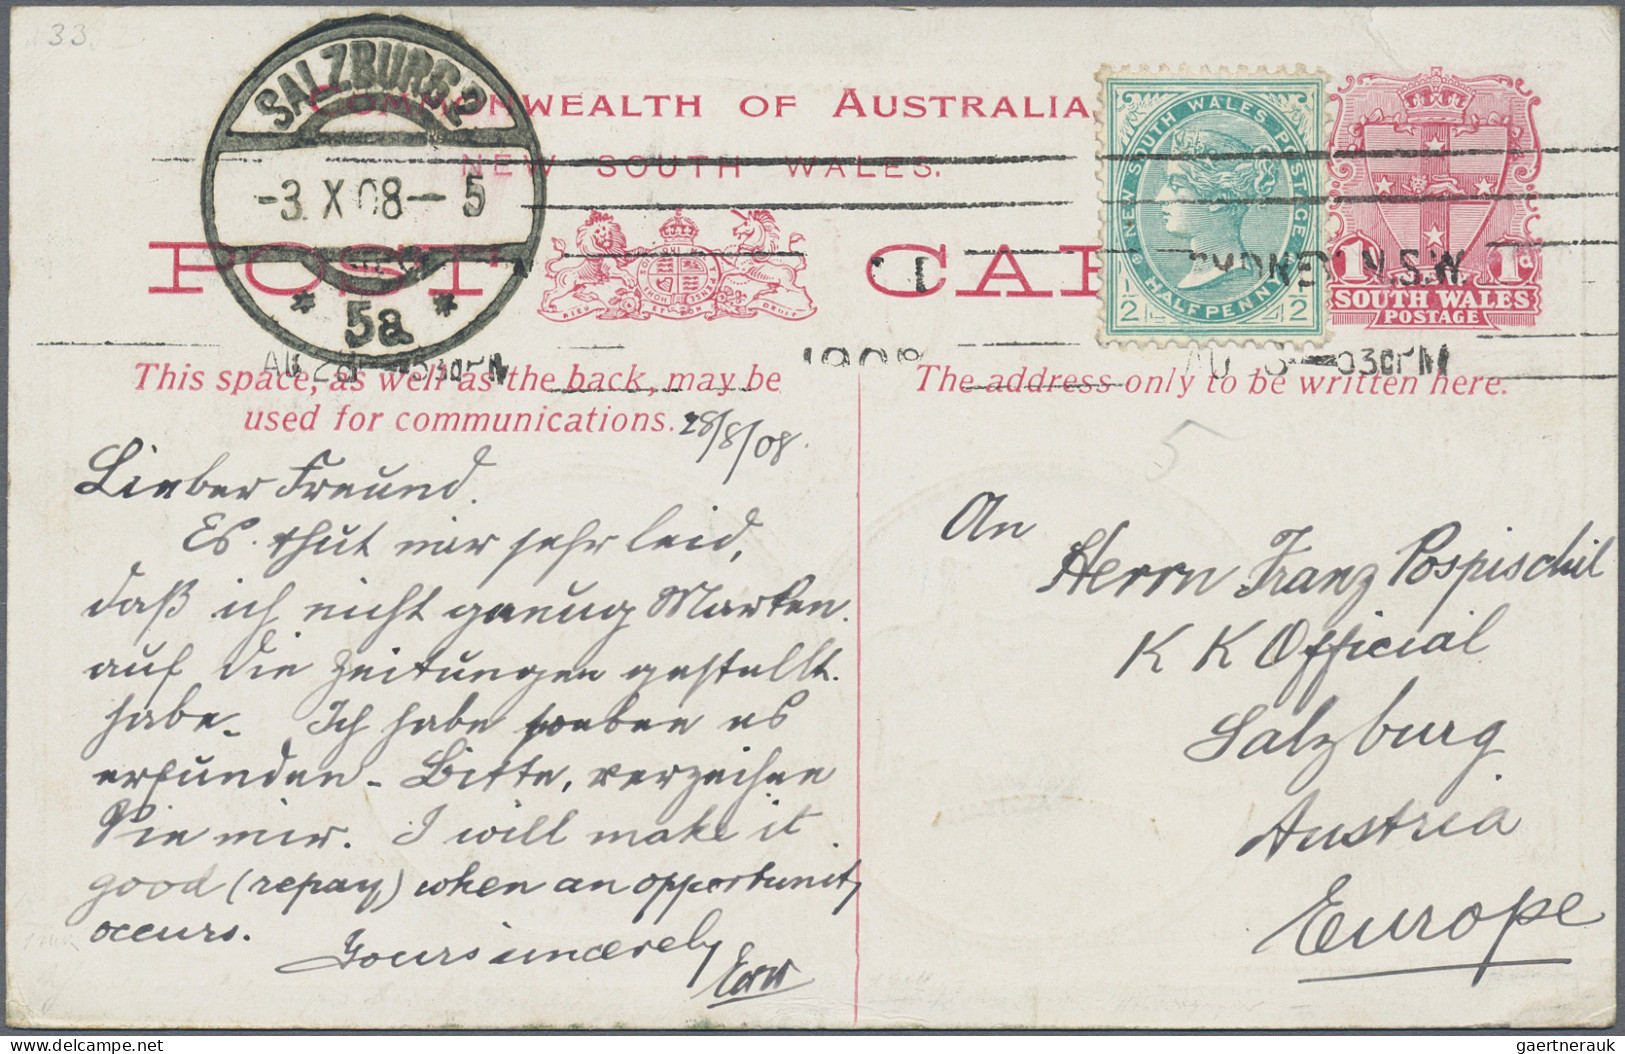 33
SALZBURG 2
-3.X.08-5
* 5a *
COMMONWEALTH OF AUSTRALIA
NEW SOUTH WALES.
POST CAR
NEW SOUTH WALES POSTAGE
HALFPENNY
1/2 1/2
1 1d
SOUTH WALES
POSTAGE
SYDNEY N.S.W.
1908
530PM
930PM
This space, as well as the back, may be
used for communications.
28/8/08.
Lieber Freund.
Es thut mir sehr leid,
daß ich nicht genug Marken
auf die Zeitungen gestellt
habe. Ich habe soeben es
erfunden - Bitte, verzeihen
Sie mir. I will make it
good (repay) when an opportunity
occurs.
Yours sincerely
The address only to be written here.
5
An
Herrn Franz Pospischil
K K Official
Salzburg
Austria
Europe
gaertnerauk